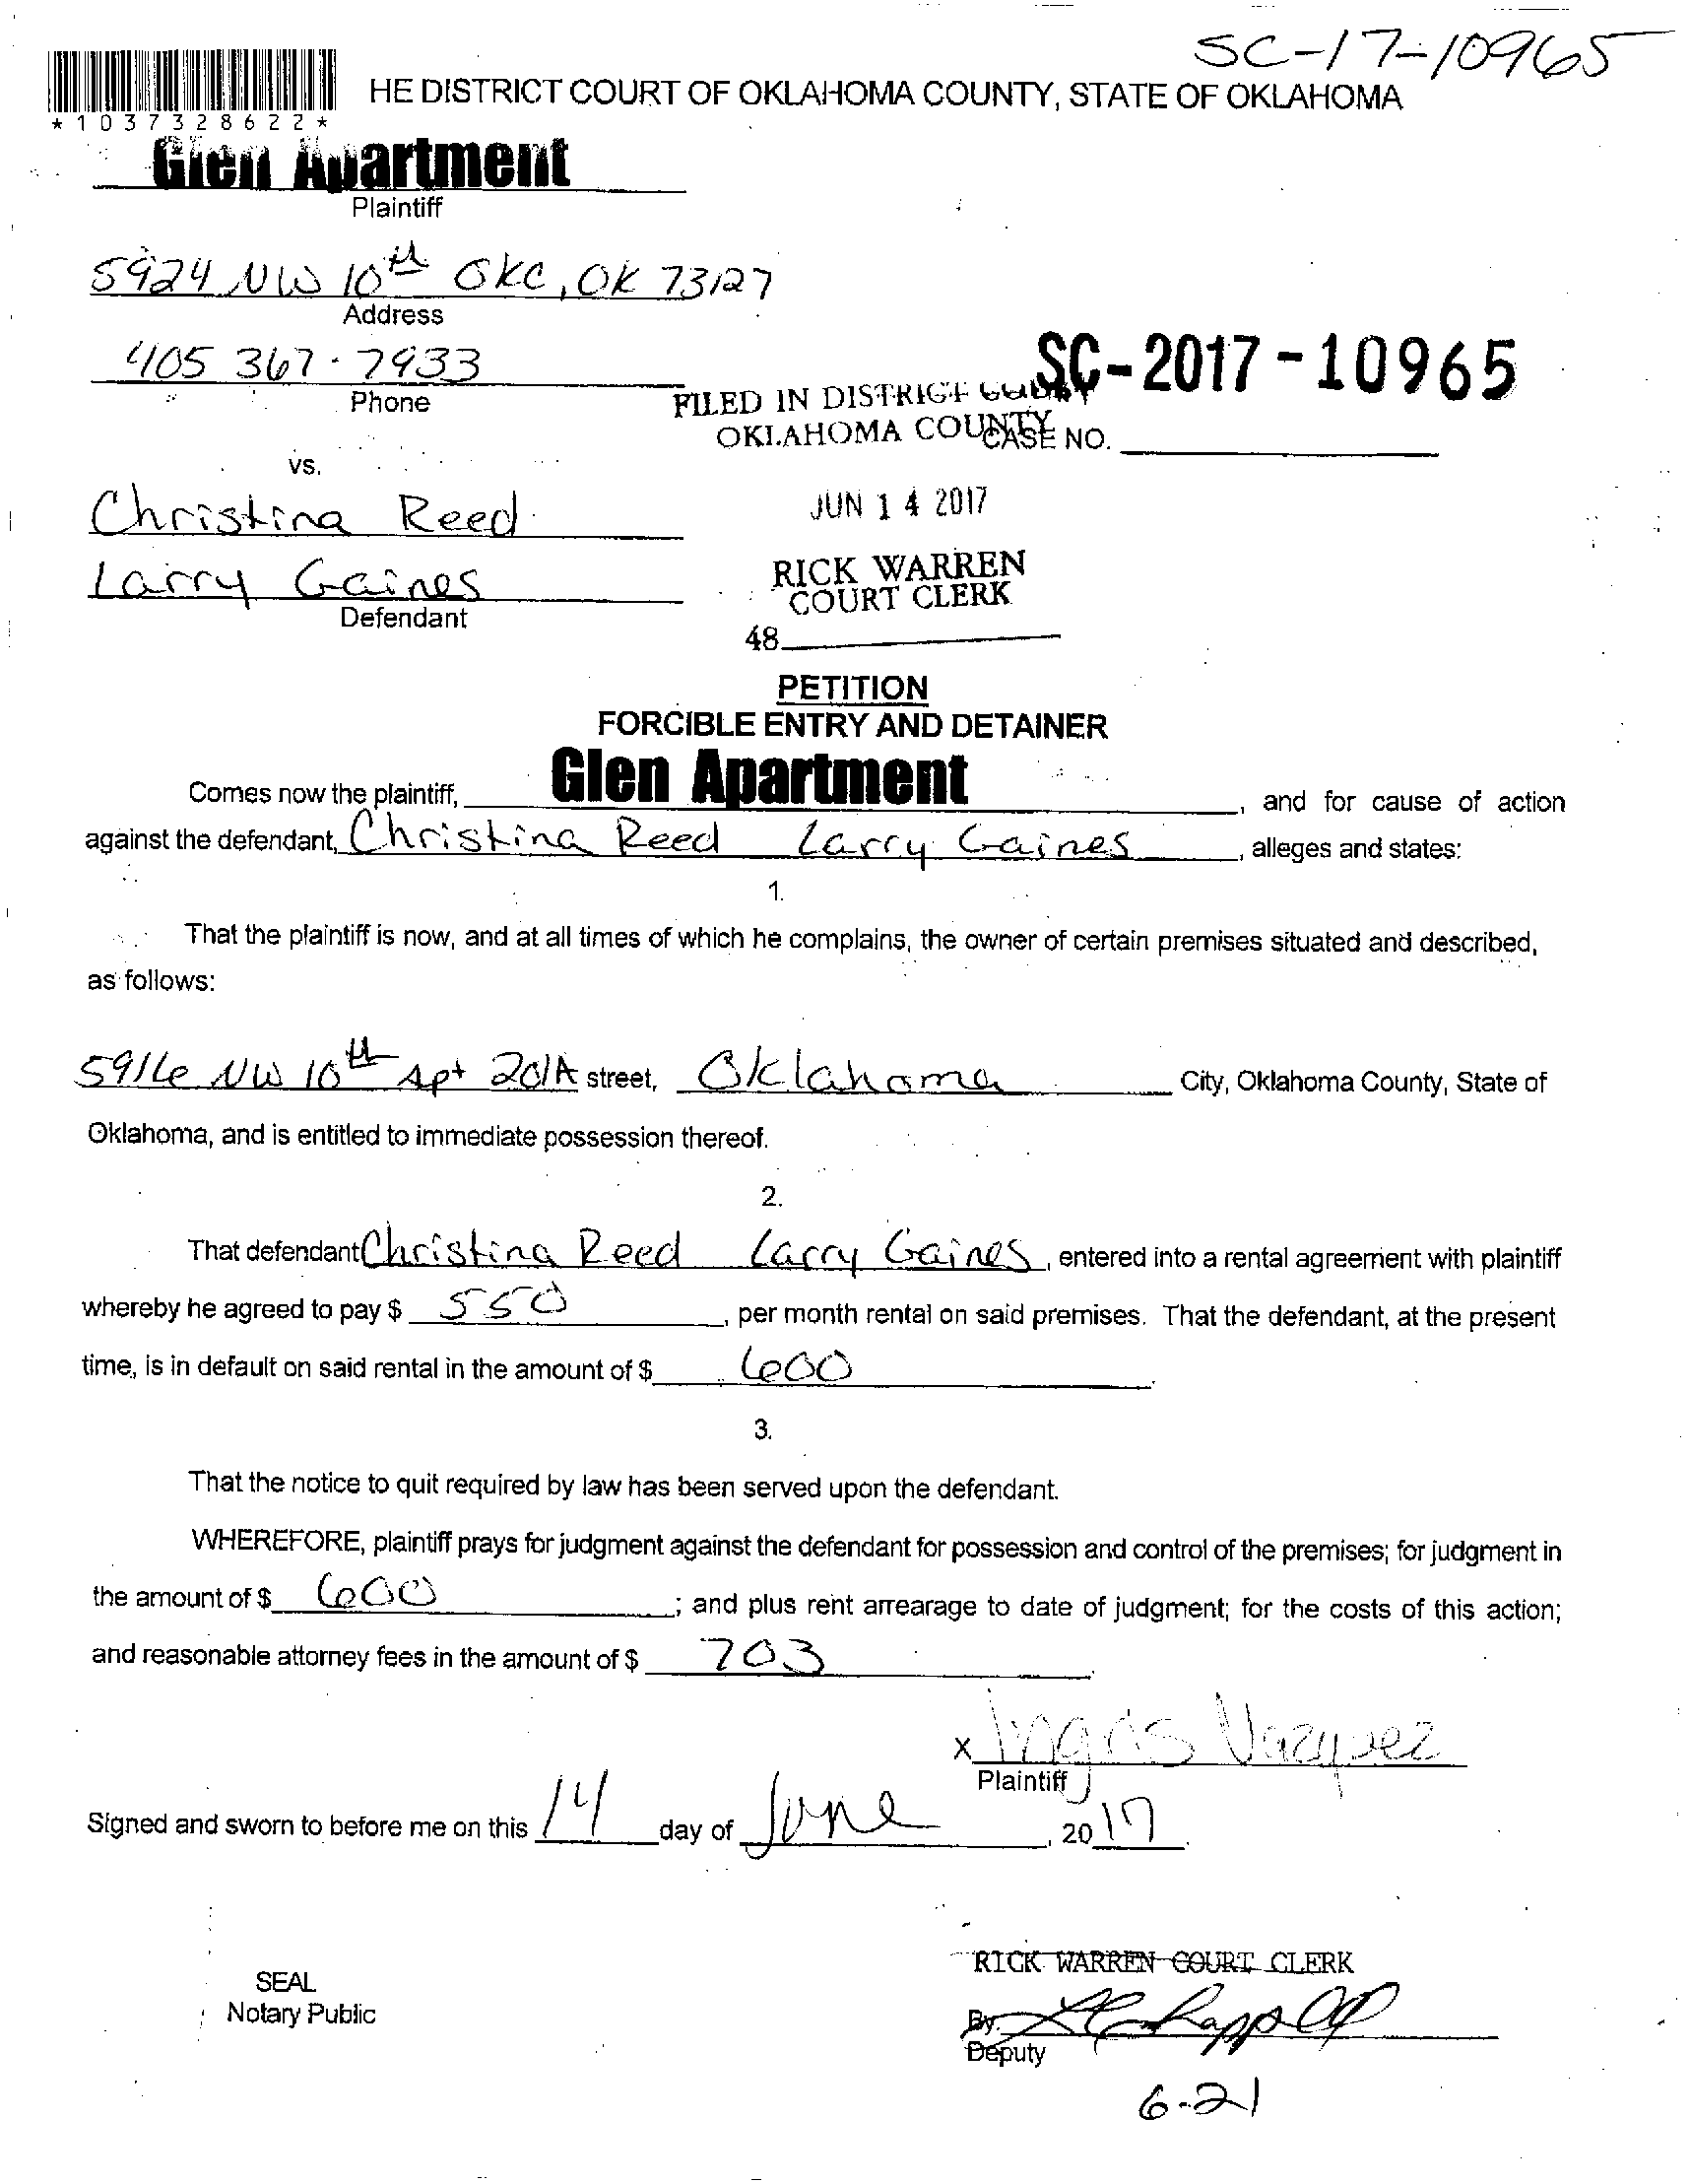 SC-17-10965
HE DISTRICT COURT OF OKLAHOMA COUNTY, STATE OF OKLAHOMA
* 1 0 3 7 3 2 8 6 2 2 *
Glen Apartment
Plaintiff
5924 NW 10th OKC, OK 73127
Address
405 367-7933
Phone
SC-2017-10965
FILED IN DISTRICT COURT
OKLAHOMA COUNTY
CASE NO.
vs.
Christina Reed
JUN 14 2017
Larry Gaines
RICK WARREN
COURT CLERK
Defendant
48
PETITION
FORCIBLE ENTRY AND DETAINER
Comes now the plaintiff, Glen Apartment, and for cause of action
against the defendant, Christina Reed Larry Gaines, alleges and states:
1.
That the plaintiff is now, and at all times of which he complains, the owner of certain premises situated and described,
as follows:
5916 NW 10th Apt 201A street, Oklahoma City, Oklahoma County, State of
Oklahoma, and is entitled to immediate possession thereof.
2.
That defendant Christina Reed Larry Gaines, entered into a rental agreement with plaintiff
whereby he agreed to pay $ 550, per month rental on said premises. That the defendant, at the present
time, is in default on said rental in the amount of $ 600.
3.
That the notice to quit required by law has been served upon the defendant.
WHEREFORE, plaintiff prays for judgment against the defendant for possession and control of the premises; for judgment in
the amount of $ 600; and plus rent arrearage to date of judgment; for the costs of this action;
and reasonable attorney fees in the amount of $ 703.
x Ingris Vazquez
Plaintiff
Signed and sworn to before me on this 14 day of June, 2017.
RICK WARREN COURT CLERK
SEAL
Notary Public
By
Deputy
6-21